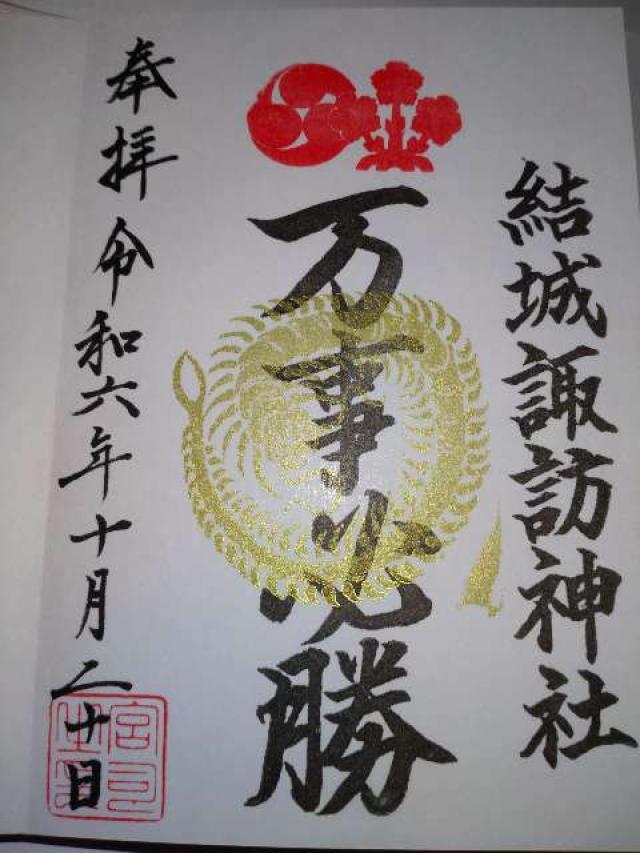 結城諏訪神社
万事必勝
奉拝 令和六年十月二十日